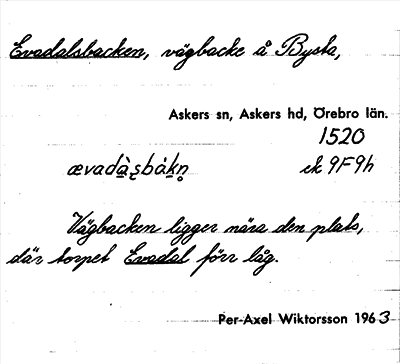 Evadalsbacken, vägbacke å Bysta,
Askers sn, Askers hd, Örebro län.
1520
ævadà̱ʂbákn̥ ek 9F9h
Vägbacken ligger nära den plats,
där torpet Evadal förr låg.
Per-Axel Wiktorsson 1963